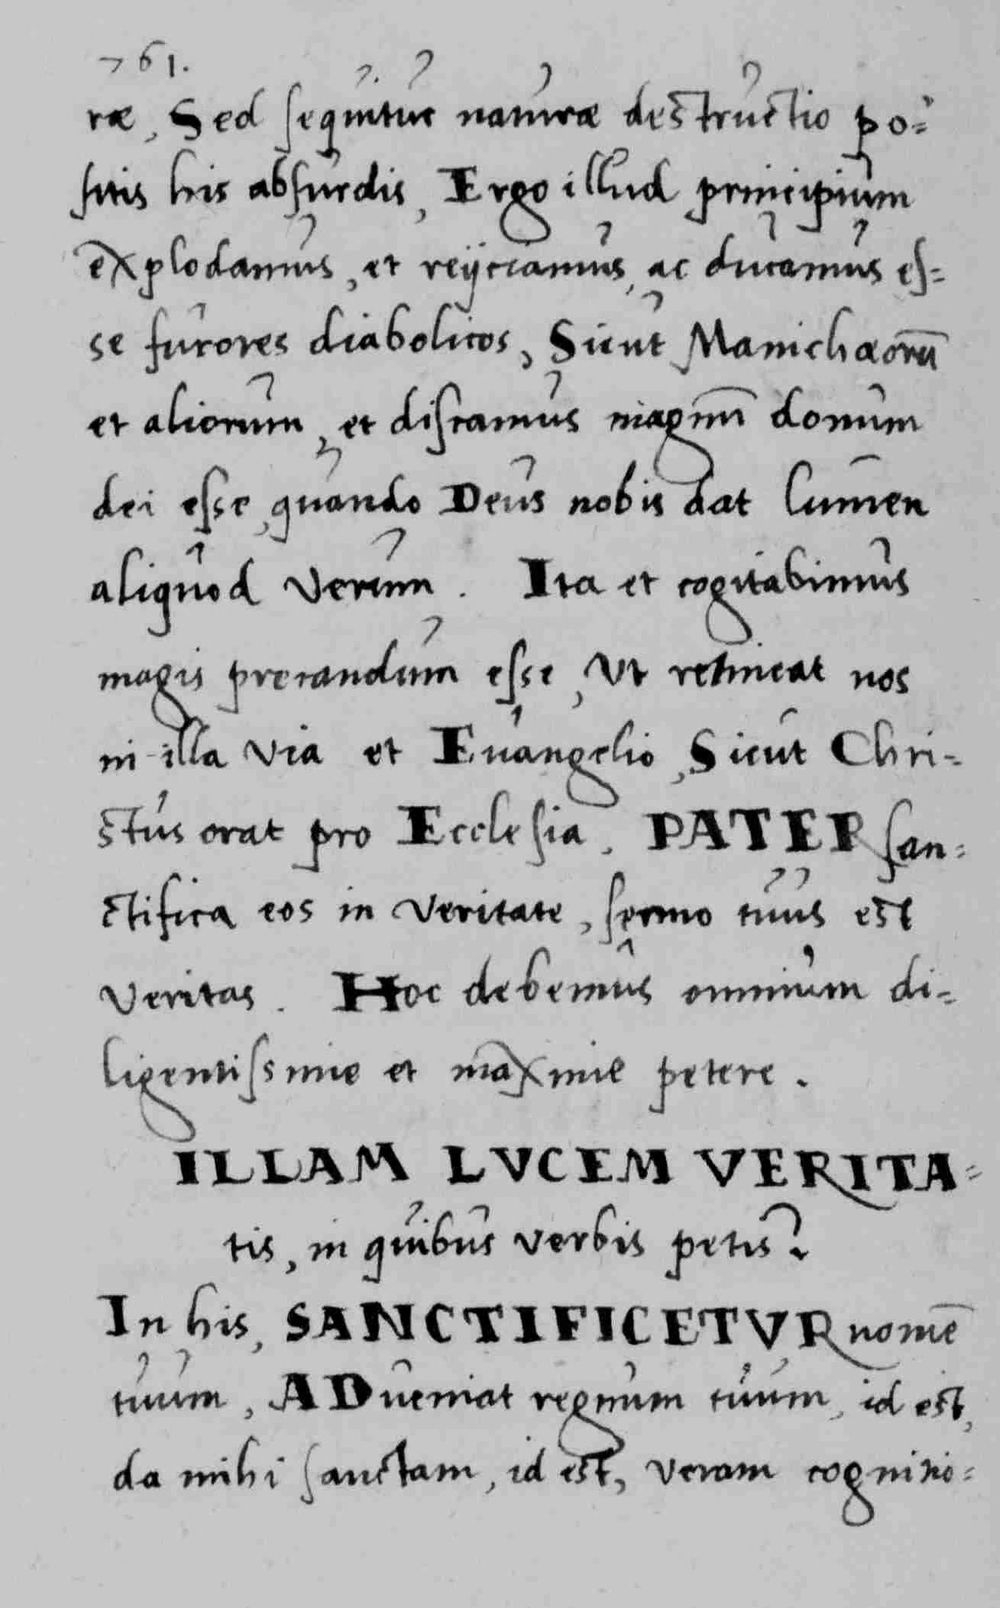 761.
ræ, Sed sequitur naturæ destructio po=
sitis his absurdis, Ergo illud principium
explodamus, et reijciamus, ac ducamus es=
se furores diabolicos, Sicut Manichæorū
et aliorum, et discamus magnū donum
dei esse, quando Deus nobis dat lumen
aliquod verum. Ita et cogitabimus
magis precandum esse, Ut retineat nos
in illa via et Euangelio, Sicut Chri=
stus orat pro Ecclesia. PATER san=
ctifica eos in veritate, sermo tuus est
veritas. Hoc debemus omnium di=
ligentissime et maxime petere.
ILLAM LVCEM VERITA=
tis, in quibus verbis petis?
In his, SANCTIFICETVR nomē
tuum, ADueniat regnum tuum, id est,
da mihi sanctam, id est, veram cognitio=